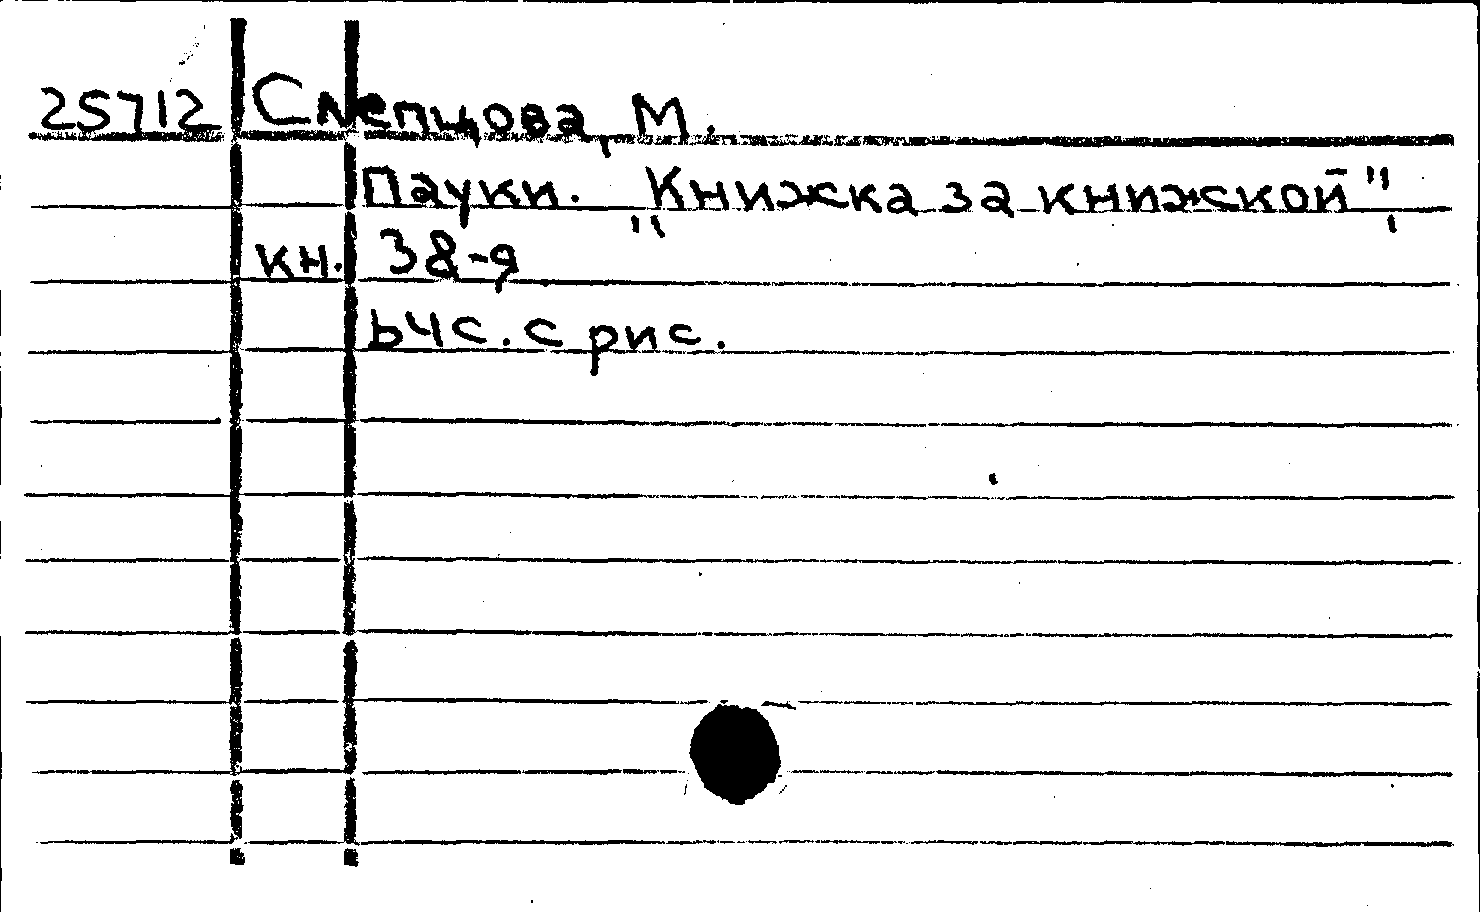 25712 Слепцова, М.
Пауки. „Книжка за книжкой",
кн. 38-я
64с. с рис.